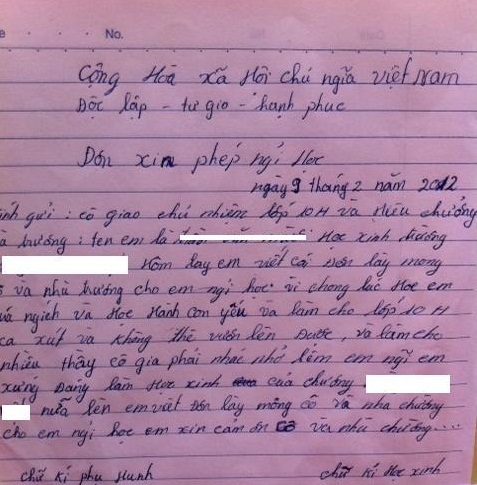 No.
Cộng Hòa xã Hội chủ ngĩa việt Nam
Độc lập - tự gio - hạnh phuc
Đơn xin phép ngỉ Học
ngày 9 tháng 2 năm 2012
ính gửi: cô giao chủ nhiệm lớp 10 H và
à trường: ten em là Học xinh đường
Hôm lay em viết cái đơn lây mong
và nhà trường cho em ngị học vì chong lúc Học em
và Học Hành con yếu và làm cho lớp 10 H
xút và không thể vươn lên được, và làm cho
nhiều thầy cô gia phải nhac nhở lêm em ngĩ em
xưng đáng làm Học xinh của chường
nữa lên em viết đơn lây mông cô và nha chường
cho em ngỉ học em xin cảm ơn cô và nhà chường...
chữ kí phu Hunh chữ kí Học xinh